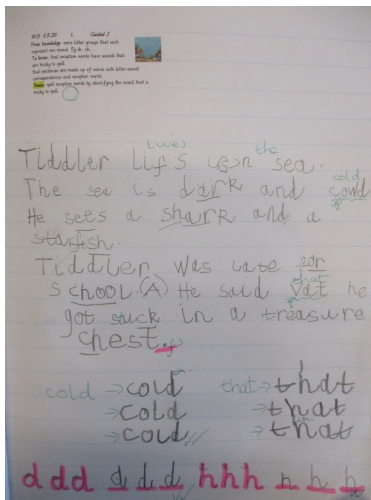 W.B 8.5.26 L Guided I
Prior knowledge: some letter groups that each
represent one sound. Eg sh, ch.
To know: that exception words have sounds that
are tricky to spell.
that sentences are made up of words with letter-sound
correspondence and exception words.
Power: spell exception words by identifying the sound that is
tricky to spell.
lives the
Tiddler lifs in sea.
cold
The sea is dark and cowd
He sees a shark and a
starfish.
Tiddler was late for
that
school. (A) He said vat he
got stuck in a treasure
chest.
cold → cold that → that
→ cold → that
→ cold → that
d d d d d d h h h h h h